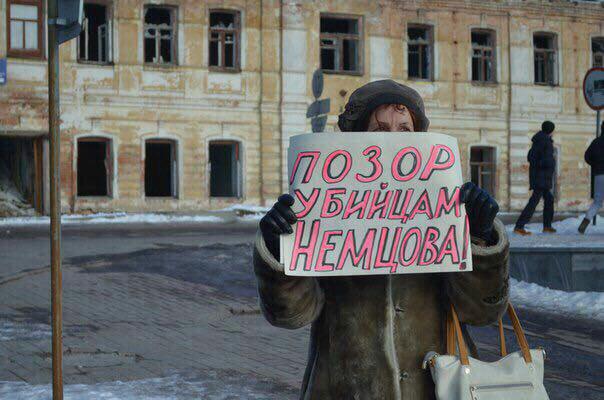 ПОЗОР
УБИЙЦАМ
НЕМЦОВА!